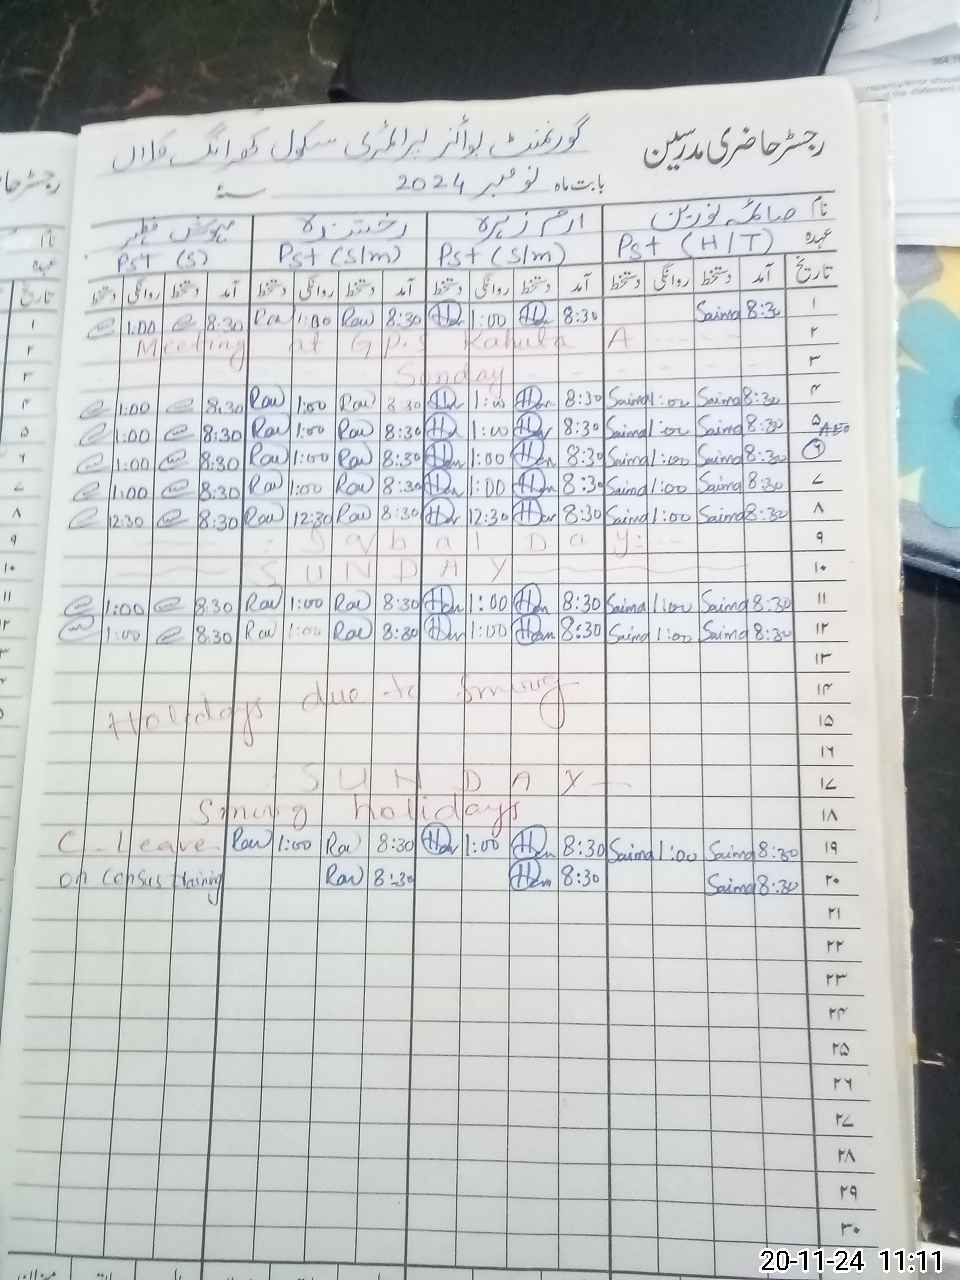 رجسٹر حاضری مدرسین
گورنمنٹ بوائز پرائمری سکول
بابت ماہ نومبر 2024 سنہ
نام صائمہ نورین ارم زہرہ رخشندہ
عہدہ Pst (H/T) Pst (S/m) Pst (S/m) Pst (S)
تاریخ آمد دستخط روانگی دستخط آمد دستخط روانگی دستخط آمد دستخط روانگی دستخط آمد دستخط روانگی دستخط
۱ 8:30 Saima 8:30 1:00 8:30 Raw 1:00 8:30 1:00
۲ Meeting at GPS Kahuta A
۳ Sunday
۴ 8:30 Saima 1:00 Saima 8:30 1:00 8:30 Raw 1:00 Raw 8:30 1:00
۵ AEO 8:30 Saima 1:00 Saima 8:30 1:00 8:30 Raw 1:00 Raw 8:30 1:00
۶ 8:30 Saima 1:00 Saima 8:30 1:00 8:30 Raw 1:00 Raw 8:30 1:00
۷ 8:30 Saima 1:00 Saima 8:30 1:00 8:30 Raw 1:00 Raw 8:30 1:00
۸ 8:30 Saima 1:00 Saima 8:30 12:30 8:30 Raw 12:30 Raw 8:30 12:30
۹ Iqbal Day
۱۰ SUNDAY
۱۱ 8:30 Saima 1:00 Saima 8:30 1:00 8:30 Raw 1:00 Raw 8:30 1:00
۱۲ 8:30 Saima 1:00 Saima 8:30 1:00 8:30 Raw 1:00 Raw 8:30 1:00
۱۳
۱۴ Holidays due to Smuog
۱۵
۱۶
۱۷ SUNDAY
۱۸ Smuog holidays
۱۹ 8:30 Saima 1:00 Saima 8:30 1:00 8:30 Raw 1:00 Raw C. Leave
۲۰ 8:30 Saima 8:30 8:30 Raw on census training
۲۱
۲۲
۲۳
۲۴
۲۵
۲۶
۲۷
۲۸
۲۹
۳۰
20-11-24 11:11